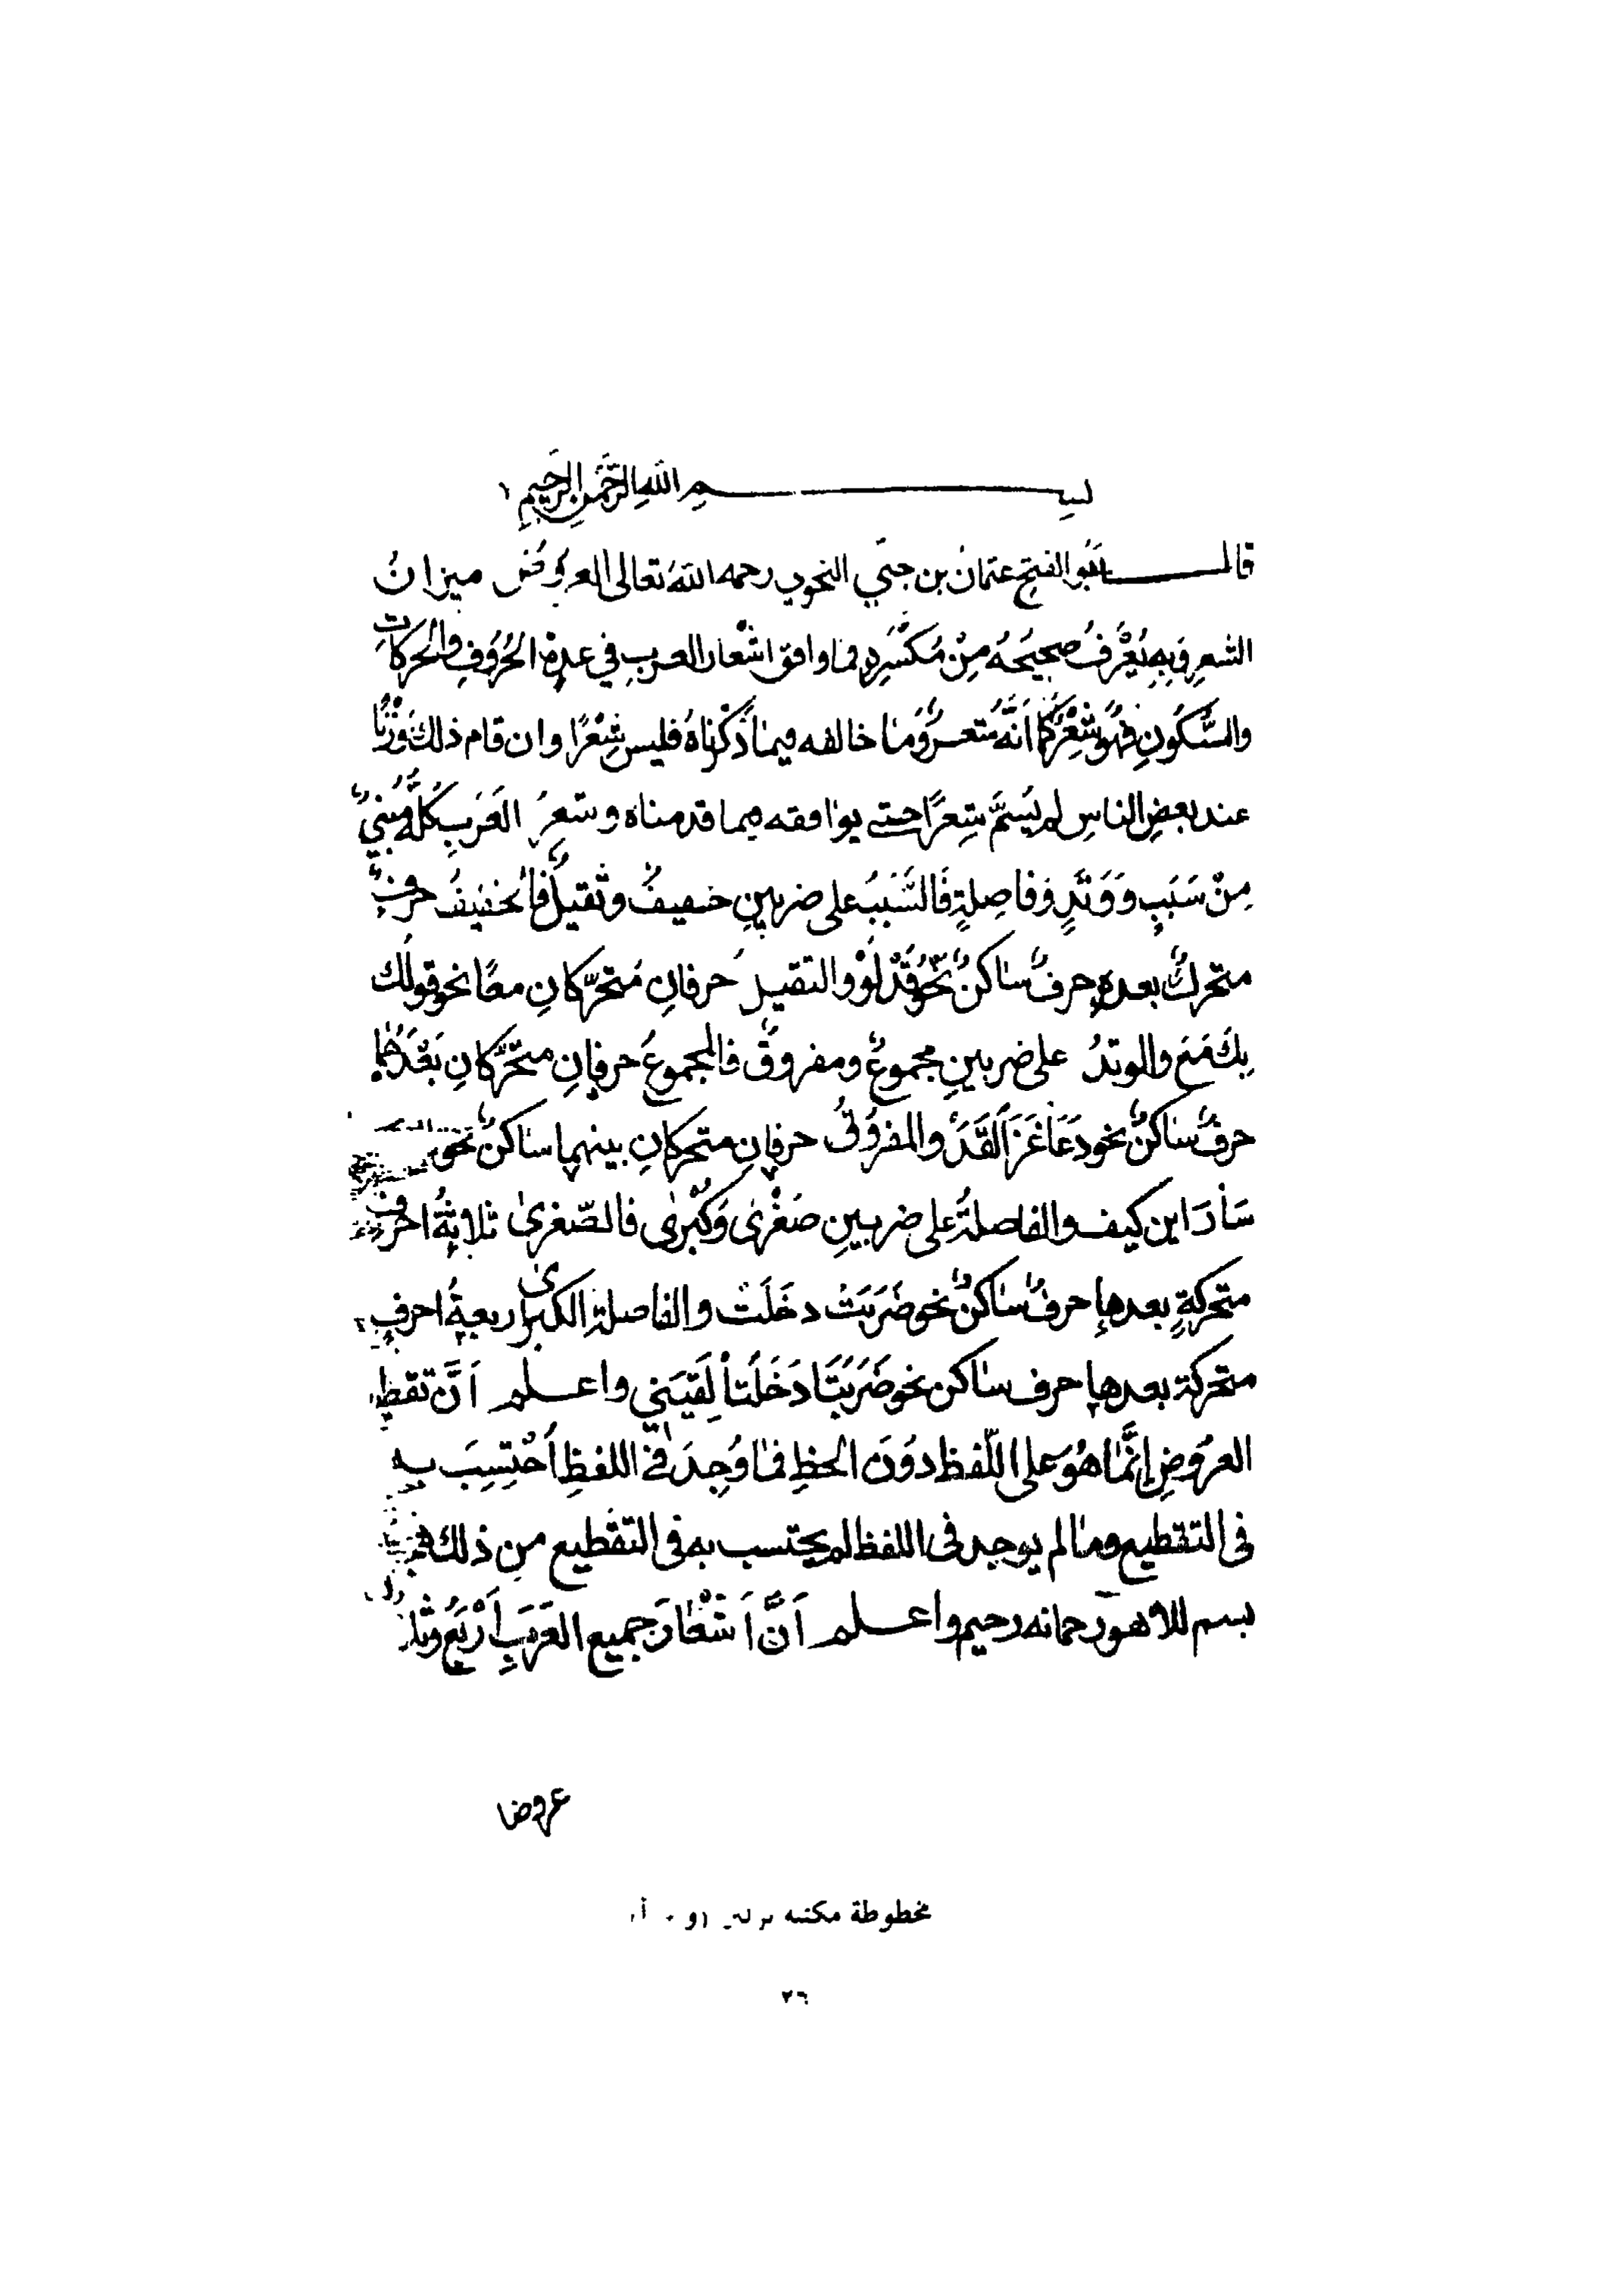 بسم الله الرحمن الرحيم
قال أبو الفتح عثمان بن جني النحوي رحمه الله تعالى العروض ميزان
الشعر وَبِهِ يُعْرَفُ صحيحُهُ مِنْ مُكَسَّرِهِ فما وافق اشْعار العربِ في عدةِ الحُرُوفِ والحركاتِ
والسُّكُونِ فهُوَ شِعْرٌ كما أَنَّهُ وَمَا خالفه فيمَا ذَكَرناهُ فليس شِعْرًا وان قام ذلك وَزْنًا
عند بعضِ الناسِ لم يُسَمَّ شِعرًا حتى يوافقه فيما قدمناه وشعرُ العَرَبِ كُلُّهُ مَبْنِيٌّ
مِنْ سَبَبٍ وَوَتَدٍ وَفاصِلةٍ فَالسَّبَبُ على ضربينِ خفيفٌ وثَقيلٌ فالخفيفُ حرفٌ
متحركٌ بعده حرفٌ ساكنٌ نحْوُ قَدْ لَوْ والثقيلُ حرفانِ مُتحرّكانِ معًا نحو قولك
بِكَ مَعَ والوتدُ على ضربينِ مجموعٌ ومفروقٌ فالمجموعُ حرفانِ متحرَّكانِ بَعْدَهُما
حرفٌ ساكنٌ نحو دَعَا غَزَا لَقَدْ والمفرُوقُ حرفانِ متحركانِ بينهما ساكنٌ نحو
سَارَ اين كيف والفاصلةُ على ضربينِ صُغْرَى وَكُبْرى فالصّغرىٰ ثلاثةُ احرفٍ
متحركةٍ بعدها حرفٌ ساكنٌ نحو ضَرَبَتْ دخَلَتْ والفاصلة الكبرى اربعةُ احرفٍ
متحركة بعدها حرف ساكن نحو ضَرَبَتَا دَخَلَتا لَقِيَني واعلم أنَّ تقطيع
العرُوضِ إنَّمَا هُوَ على اللّفظ دوُنَ الخطِ فما وُجِدَ في اللفظِ أُحْتِسِبَ به
فى التقطيع وما لم يوجد فى اللفظ لم يحتسب به فى التقطيع من ذلك
بسم للاهر رحمانه رحيم واعلم أنَّ أَشْعَارَ جميع العَرَبِ أرْبَعٌ وثلا
عروضا
مخطوطة مكتبه برلين
٢٦